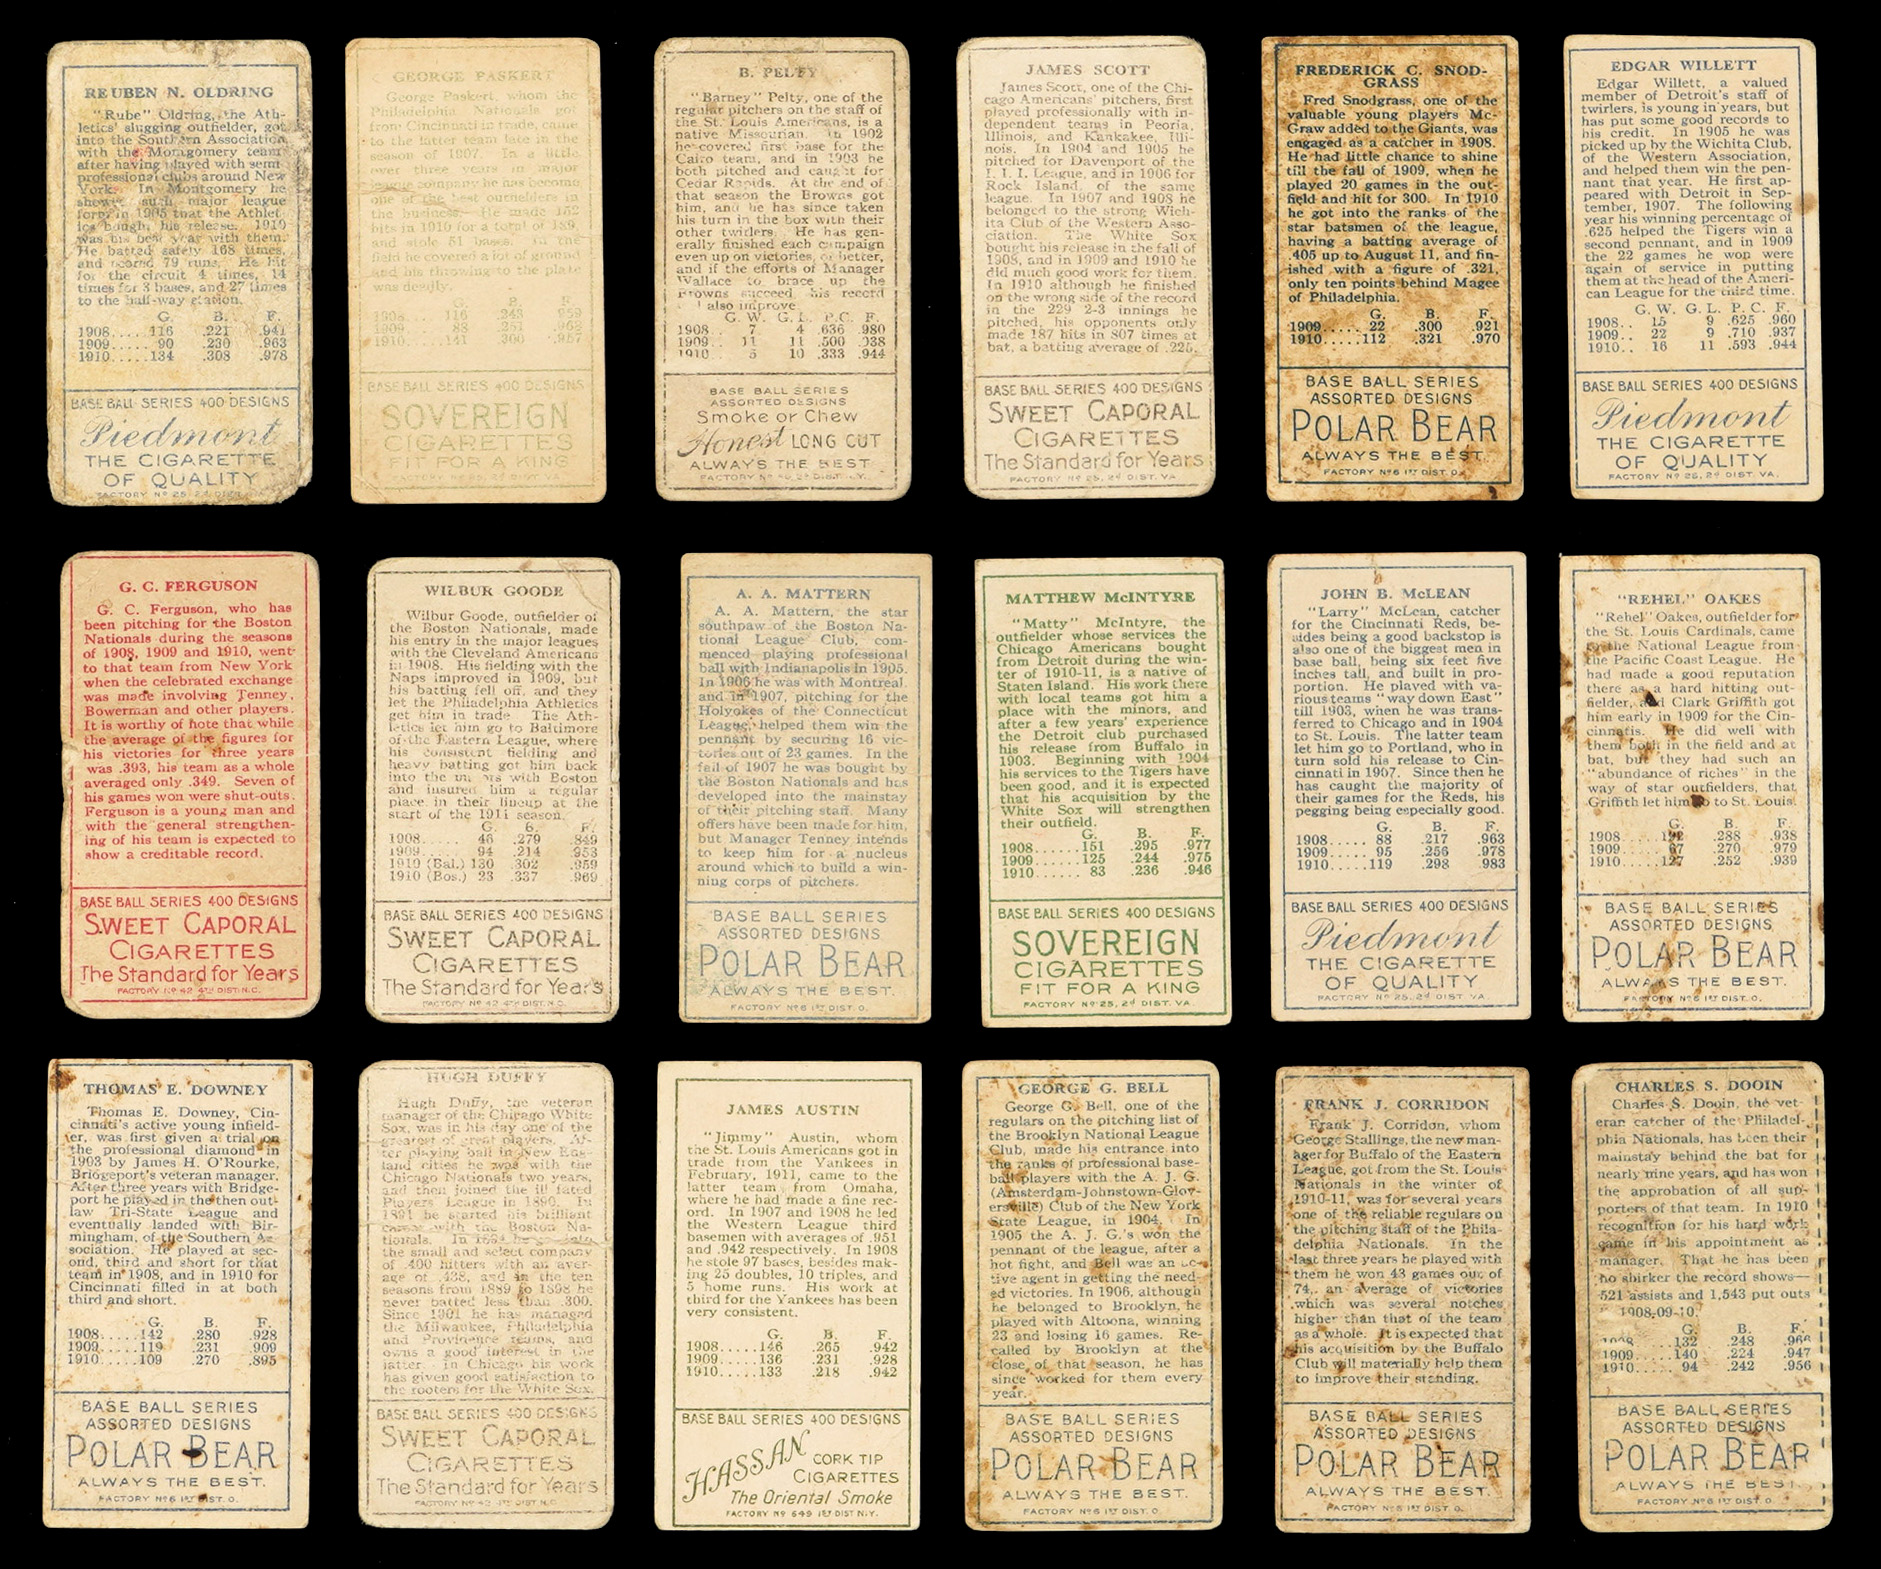 REUBEN N. OLDRING
"Rube" Oldring, the Ath-
letics' slugging outfielder, got
into the Southern Association
with the Montgomery team
after having played with semi-
professional clubs around New
York. In Montgomery he
showed such major league
form in 1905 that the Athlet-
ics bought his release. 1910
was his best year with them.
He batted safely 168 times,
and scored 79 runs. He hit
for the circuit 4 times, 14
times for 3 bases, and 27 times
to the half-way station.
G. B. F.
1908..... 116 .221 .941
1909..... 90 .230 .963
1910..... 134 .308 .978
BASE BALL SERIES 400 DESIGNS
Piedmont
THE CIGARETTE
OF QUALITY
FACTORY Nº 25, 2d DIST.
GEORGE PASKERT
George Paskert, whom the
Philadelphia Nationals got
from Cincinnati in trade, came
to the latter team late in the
season of 1907. In a little
over three years in major
league company he has become
one of the best outfielders in
the business. He made 152
hits in 1910 for a total of 189,
and stole 51 bases. In the
field he covered a lot of ground
and his throwing to the plate
was deadly.
G. B. F.
1908 116 .243 .959
1909 88 .251 .968
1910 141 .300 .967
BASE BALL SERIES 400 DESIGNS
SOVEREIGN
CIGARETTES
FIT FOR A KING
FACTORY Nº 25, 2d DIST. VA.
B. PELTY
"Barney" Pelty, one of the
regular pitchers on the staff of
the St. Louis Americans, is a
native Missourian. In 1902
he covered first base for the
Cairo team, and in 1903 he
both pitched and caught for
Cedar Rapids. At the end of
that season the Browns got
him, and he has since taken
his turn in the box with their
other twirlers. He has gen-
erally finished each campaign
even up on victories, or better,
and if the efforts of Manager
Wallace to brace up the
Browns succeed his record
also improve
G. W. G. L. P.C. F.
1908.. 7 4 .636 .980
1909.. 11 11 .500 .938
1910.. 5 10 .333 .944
BASE BALL SERIES
ASSORTED DESIGNS
Smoke or Chew
Honest LONG CUT
ALWAYS THE BEST
JAMES SCOTT
James Scott, one of the Chi-
cago Americans' pitchers, first
played professionally with in-
dependent teams in Peoria,
Illinois, and Kankakee, Illi-
nois. In 1904 and 1905 he
pitched for Davenport of the
I. I. I. League, and in 1906 for
Rock Island, of the same
league. In 1907 and 1908 he
belonged to the strong Wich-
ita Club of the Western Asso-
ciation. The White Sox
bought his release in the fall of
1908, and in 1909 and 1910 he
did much good work for them.
In 1910 although he finished
on the wrong side of the record
in the 229 2-3 innings he
pitched, his opponents only
made 187 hits in 807 times at
bat, a batting average of .225.
BASE BALL SERIES 400 DESIGNS
SWEET CAPORAL
CIGARETTES
The Standard for Years
FACTORY Nº 25, 2d DIST. VA
FREDERICK C. SNOD-
GRASS
Fred Snodgrass, one of the
valuable young players Mc-
Graw added to the Giants, was
engaged as a catcher in 1908.
He had little chance to shine
till the fall of 1909, when he
played 20 games in the out-
field and hit for 300. In 1910
he got into the ranks of the
star batsmen of the league,
having a batting average of
.405 up to August 11, and fin-
ished with a figure of .321,
only ten points behind Magee
of Philadelphia.
G. B. F.
1909...... 22 .300 .921
1910......112 .321 .970
BASE BALL SERIES
ASSORTED DESIGNS
POLAR BEAR
ALWAYS THE BEST.
FACTORY Nº6 1ST DIST. O.
EDGAR WILLETT
Edgar Willett, a valued
member of Detroit's staff of
twirlers, is young in years, but
has put some good records to
his credit. In 1905 he was
picked up by the Wichita Club,
of the Western Association,
and helped them win the pen-
nant that year. He first ap-
peared with Detroit in Sep-
tember, 1907. The following
year his winning percentage of
.625 helped the Tigers win a
second pennant, and in 1909
the 22 games he won were
again of service in putting
them at the head of the Ameri-
can League for the third time.
G. W. G. L. P. C. F.
1908.. 15 9 .625 .960
1909.. 22 9 .710 .937
1910.. 16 11 .593 .944
BASE BALL SERIES 400 DESIGNS
Piedmont
THE CIGARETTE
OF QUALITY
FACTORY Nº 25, 2d DIST. VA.
G. C. FERGUSON
G. C. Ferguson, who has
been pitching for the Boston
Nationals during the seasons
of 1908, 1909 and 1910, went
to that team from New York
when the celebrated exchange
was made involving Tenney,
Bowerman and other players.
It is worthy of note that while
the average of the figures for
his victories for three years
was .393, his team as a whole
averaged only .349. Seven of
his games won were shut-outs.
Ferguson is a young man and
with the general strengthen-
ing of his team is expected to
show a creditable record.
BASE BALL SERIES 400 DESIGNS
SWEET CAPORAL
CIGARETTES
The Standard for Years
FACTORY Nº 42 4TH DIST. N.C.
WILBUR GOODE
Wilbur Goode, outfielder of
the Boston Nationals, made
his entry in the major leagues
with the Cleveland Americans
in 1908. His fielding with the
Naps improved in 1909, but
his batting fell off, and they
let the Philadelphia Athletics
get him in trade The Ath-
letics let him go to Baltimore
of the Eastern League, where
his consistent fielding and
heavy batting got him back
into the with Boston
and insured him a regular
place in their lineup at the
start of the 1911 season.
G. B. F.
1908...... 46 .279 .849
1909...... 94 .214 .953
1910 (Bal.) 130 .302 .959
1910 (Bos.) 23 .337 .969
BASE BALL SERIES 400 DESIGNS
SWEET CAPORAL
CIGARETTES
The Standard for Years
FACTORY Nº 42 4TH DIST. N.C.
A. A. MATTERN
A. A. Mattern, the star
southpaw of the Boston Na-
tional League Club, com-
menced playing professional
ball with Indianapolis in 1905.
In 1906 he was with Montreal
and in 1907, pitching for the
Holyokes of the Connecticut
League, helped them win the
pennant by securing 16 vic-
tories out of 23 games. In the
fall of 1907 he was bought by
the Boston Nationals and has
developed into the mainstay
of their pitching staff. Many
offers have been made for him,
but Manager Tenney intends
to keep him for a nucleus
around which to build a win-
ning corps of pitchers.
BASE BALL SERIES
ASSORTED DESIGNS
POLAR BEAR
ALWAYS THE BEST.
FACTORY Nº6 1ST DIST. O.
MATTHEW McINTYRE
"Matty" McIntyre, the
outfielder whose services the
Chicago Americans bought
from Detroit during the win-
ter of 1910-11, is a native of
Staten Island. His work there
with local teams got him a
place with the minors, and
after a few years' experience
the Detroit club purchased
his release from Buffalo in
1903. Beginning with 1904
his services to the Tigers have
been good, and it is expected
that his acquisition by the
White Sox will strengthen
their outfield.
G. B. F.
1908......151 .295 .977
1909......125 .244 .975
1910...... 83 .236 .946
BASE BALL SERIES 400 DESIGNS
SOVEREIGN
CIGARETTES
FIT FOR A KING
FACTORY Nº 25, 2d DIST. VA.
JOHN B. McLEAN
"Larry" McLean, catcher
for the Cincinnati Reds, be-
sides being a good backstop is
also one of the biggest men in
base ball, being six feet five
inches tall, and built in pro-
portion. He played with va-
rious teams "way down East"
till 1903, when he was trans-
ferred to Chicago and in 1904
to St. Louis. The latter team
let him go to Portland, who in
turn sold his release to Cin-
cinnati in 1907. Since then he
has caught the majority of
their games for the Reds, his
pegging being especially good.
G. B. F.
1908..... 88 .217 .963
1909..... 95 .256 .978
1910..... 119 .298 .983
BASE BALL SERIES 400 DESIGNS
Piedmont
THE CIGARETTE
OF QUALITY
FACTORY Nº 25, 2d DIST VA.
"REHEL" OAKES
"Rehel" Oakes, outfielder for
the St. Louis Cardinals, came
to the National League from
the Pacific Coast League. He
had made a good reputation
there as a hard hitting out-
fielder, and Clark Griffith got
him early in 1909 for the Cin-
cinnatis. He did well with
them both in the field and at
bat, but they had such an
"abundance of riches" in the
way of star outfielders, that
Griffith let him to St. Louis.
G. B. F.
1908 .288 .938
1909 .270 .979
1910..... 127 .252 .939
BASE BALL SERIES
ASSORTED DESIGNS
POLAR BEAR
ALWAYS THE BEST.
FACTORY Nº6 1ST DIST. O.
THOMAS E. DOWNEY
Thomas E. Downey, Cin-
cinnati's active young infield-
er, was first given a trial on
the professional diamond in
1903 by James H. O'Rourke,
Bridgeport's veteran manager.
After three years with Bridge-
port he played in the then out-
law Tri-State League and
eventually landed with Bir-
mingham, of the Southern As-
sociation. He played at sec-
ond, third and short for that
team in 1908, and in 1910 for
Cincinnati filled in at both
third and short.
G. B. F.
1908.....142 .280 .928
1909.....119 .231 .909
1910.....109 .270 .895
BASE BALL SERIES
ASSORTED DESIGNS
POLAR BEAR
ALWAYS THE BEST.
FACTORY Nº6 1ST DIST. O.
HUGH DUFFY
Hugh Duffy, the veteran
manager of the Chicago White
Sox, was in his day one of the
greatest of great players. Af-
ter playing ball in New Eng-
land cities he was with the
Chicago Nationals two years,
and then joined the ill fated
Players League in 1890. In
1891 he started his brilliant
career with the Boston Na-
tionals. In 1894 he
the small and select company
of .400 hitters with an aver-
age of .438, and in the ten
seasons from 1889 to 1898 he
never batted less than .300.
Since 1901 he has managed
the Milwaukee, Philadelphia
and Providence teams, and
owns a good interest in the
latter. In Chicago his work
has given good satisfaction to
the rooters for the White Sox.
BASE BALL SERIES 400 DESIGNS
SWEET CAPORAL
CIGARETTES
The Standard for Years
JAMES AUSTIN
"Jimmy" Austin, whom
the St. Louis Americans got in
trade from the Yankees in
February, 1911, came to the
latter team from Omaha,
where he had made a fine rec-
ord. In 1907 and 1908 he led
the Western League third
basemen with averages of .951
and .942 respectively. In 1908
he stole 97 bases, besides mak-
ing 25 doubles, 10 triples, and
5 home runs. His work at
third for the Yankees has been
very consistent.
G. B. F.
1908......146 .265 .942
1909......136 .231 .928
1910......133 .218 .942
BASE BALL SERIES 400 DESIGNS
HASSAN CORK TIP
CIGARETTES
The Oriental Smoke
FACTORY Nº 649 1ST DIST. N.Y.
GEORGE G. BELL
George G. Bell, one of the
regulars on the pitching list of
the Brooklyn National League
Club, made his entrance into
the ranks of professional base-
ball players with the A. J. G.
(Amsterdam-Johnstown-Glov-
ersville) Club of the New York
State League, in 1904. In
1905 the A. J. G.'s won the
pennant of the league, after a
hot fight, and Bell was an ac-
tive agent in getting the need-
ed victories. In 1906, although
he belonged to Brooklyn, he
played with Altoona, winning
23 and losing 16 games. Re-
called by Brooklyn at the
close of that season, he has
since worked for them every
year.
BASE BALL SERIES
ASSORTED DESIGNS
POLAR BEAR
ALWAYS THE BEST.
FACTORY Nº6 1ST DIST. O.
FRANK J. CORRIDON
Frank J. Corridon, whom
George Stallings, the new man-
ager for Buffalo of the Eastern
League, got from the St. Louis
Nationals in the winter of
1910-11, was for several years
one of the reliable regulars on
the pitching staff of the Phila-
delphia Nationals. In the
last three years he played with
them he won 43 games out of
74, an average of victories
which was several notches
higher than that of the team
as a whole. It is expected that
his acquisition by the Buffalo
Club will materially help them
to improve their standing.
BASE BALL SERIES
ASSORTED DESIGNS
POLAR BEAR
ALWAYS THE BEST.
FACTORY Nº6 1ST DIST. O.
CHARLES S. DOOIN
Charles S. Dooin, the vet-
eran catcher of the Philadel-
phia Nationals, has been their
mainstay behind the bat for
nearly nine years, and has won
the approbation of all sup-
porters of that team. In 1910
recognition for his hard work
came in his appointment as
manager. That he has been
no shirker the record shows—
521 assists and 1,543 put outs
1908-09-10.
G. B. F.
1908 132 .248 .966
1909.....140 .224 .947
1910..... 94 .242 .956
BASE BALL SERIES
ASSORTED DESIGNS
POLAR BEAR
ALWAYS THE BEST
FACTORY Nº6 1ST DIST. O.